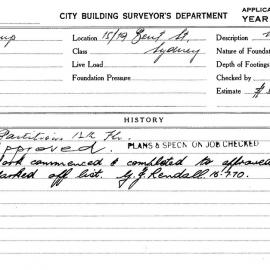 CITY BUILDING SURVEYOR'S DEPARTMENT
APPLICA
YEAR
Location 15/19 Bent St.
Description
Class Sydney
Nature of Foundat
Live Load
Depth of Footings
Foundation Pressure
Checked by
Estimate $
HISTORY
Partitions 12th Flr.
Approved. PLANS & SPECN ON JOB CHECKED
Work commenced & completed to approved
marked off list. G.J. Rendall. 18.